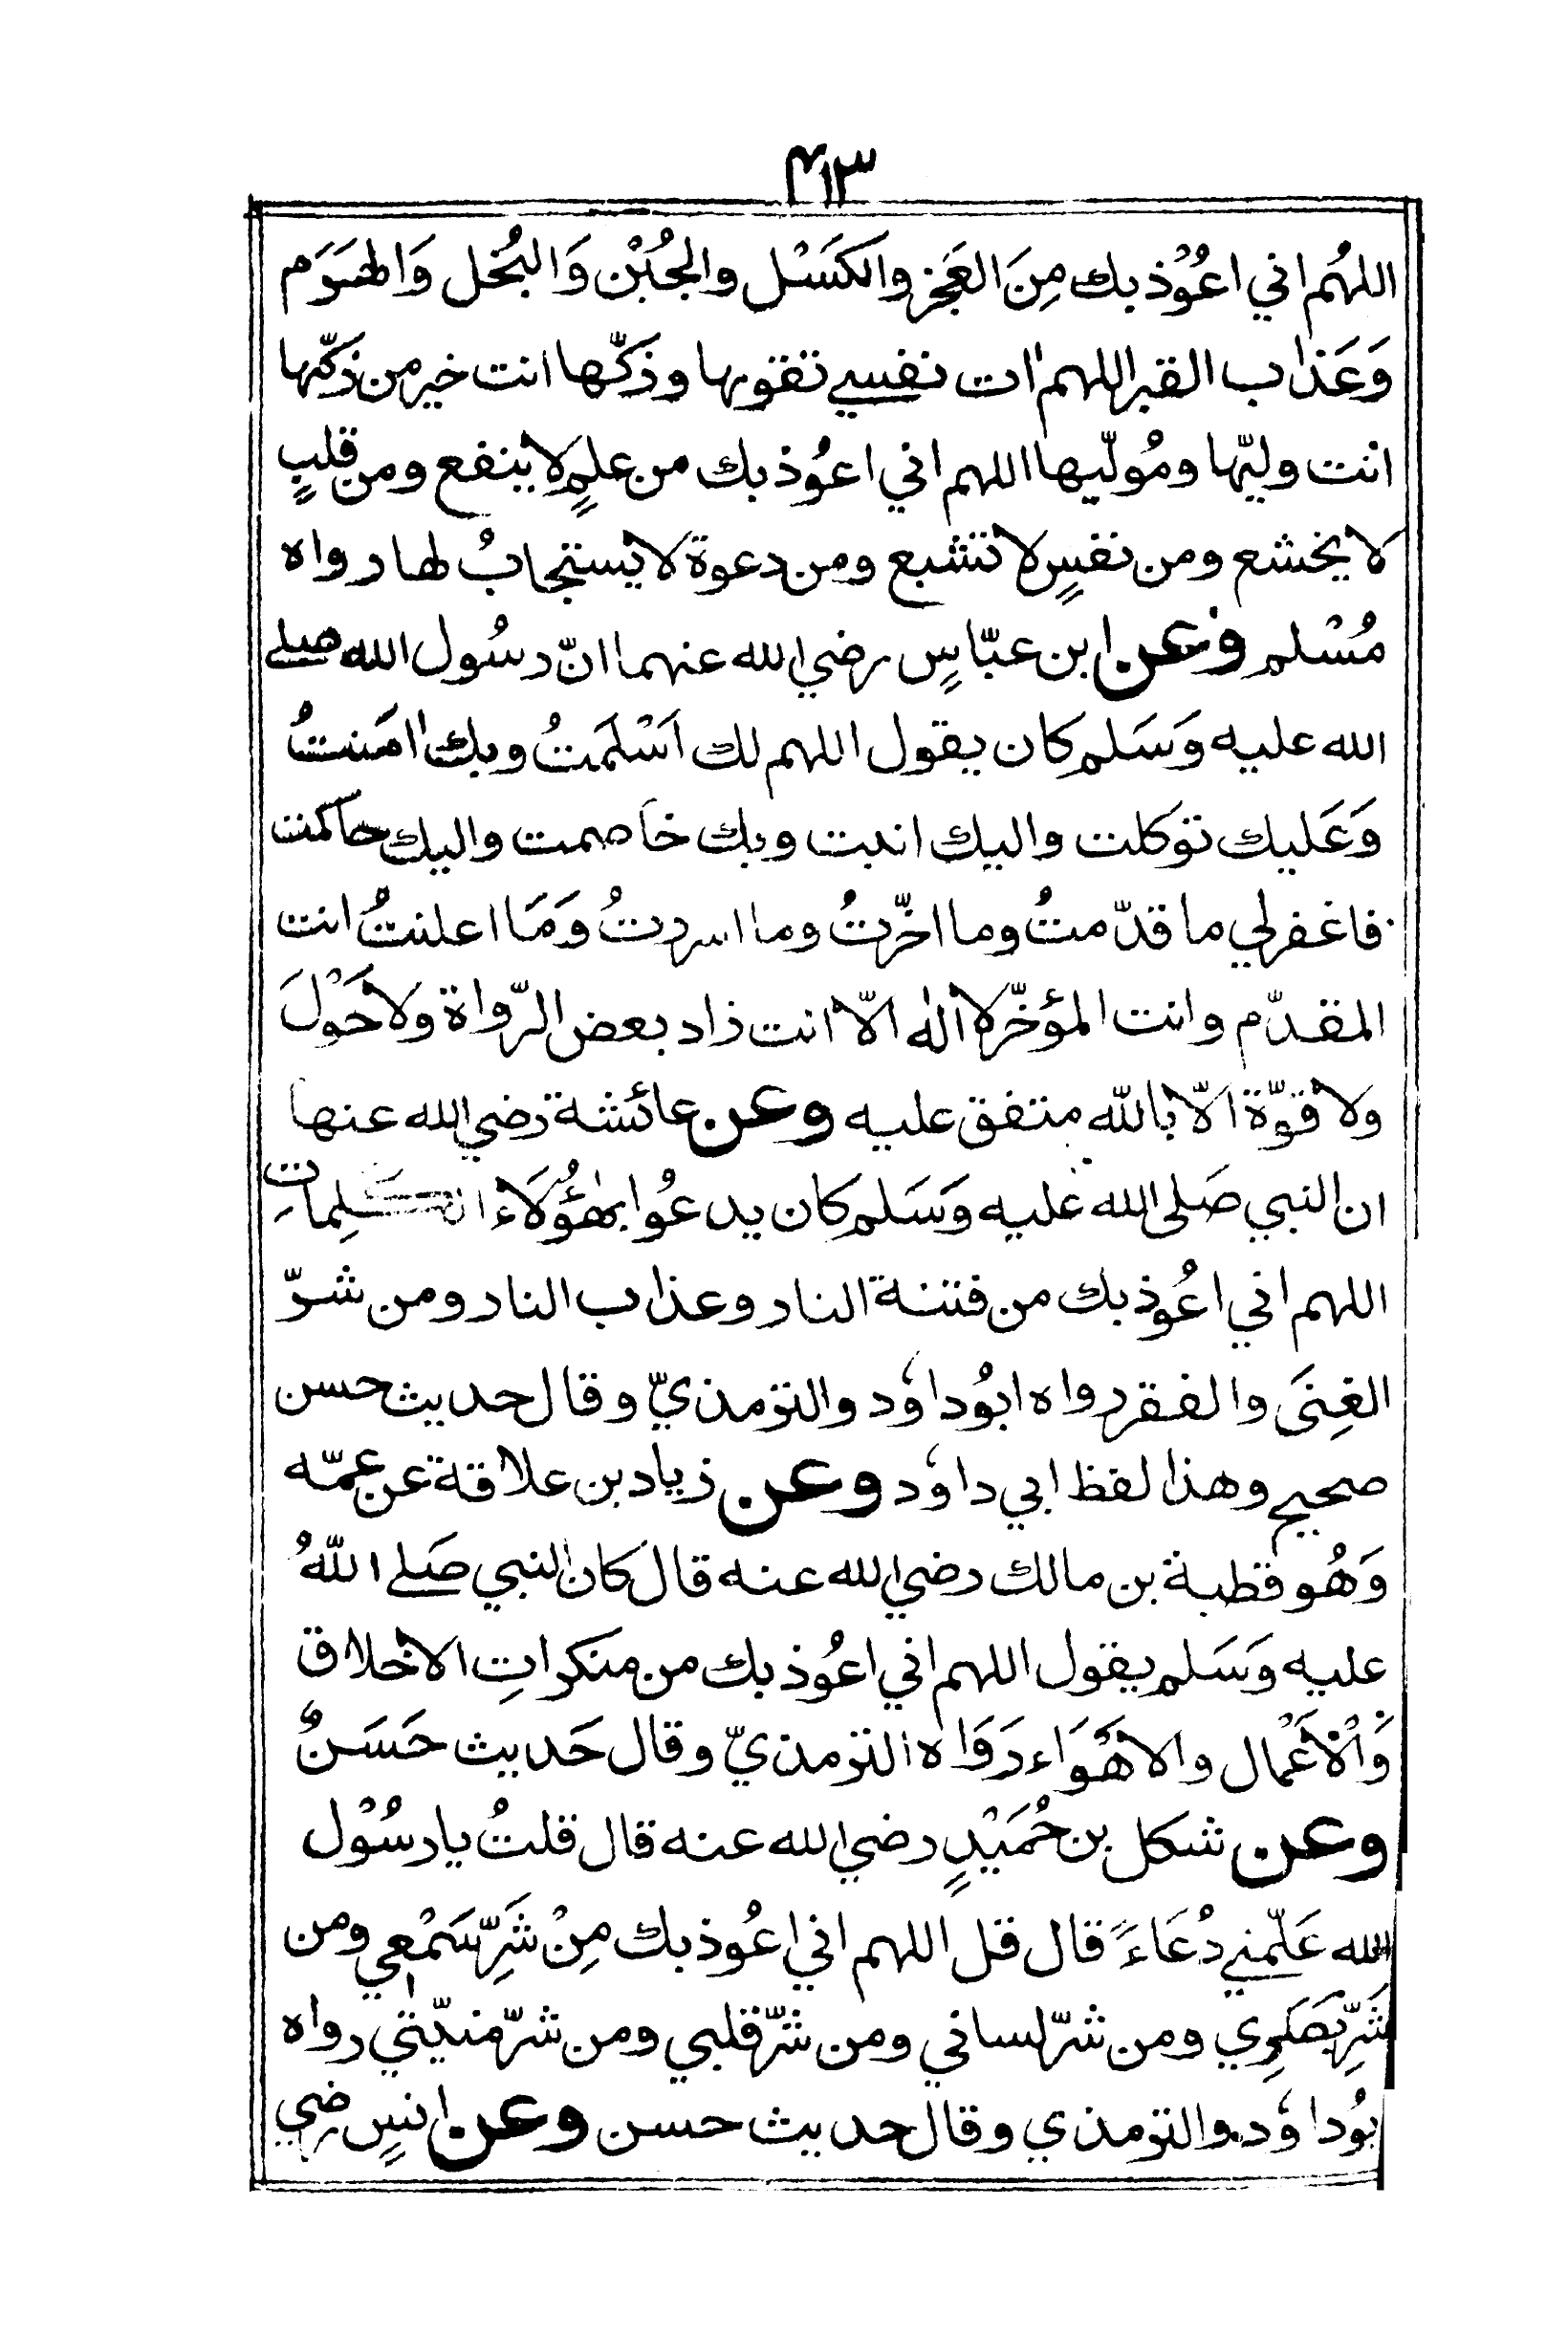 ٤١٣
اللهُم اني اعُوْذ بك مِنَ العَجز والكسَل والجُبْن وَالبُخل وَالهَرَم
وَعَذاب القبر اللهم اٰت نفسي تقوىها وذكّها انت خير من ذكّىها
انت وليّها ومُولّيها اللهم اني اعوُذ بك من علمٍ لا ينفع ومن قلبٍ
لا يخشع ومن نفسٍ لا تشبع ومن دعوة لا يستجابُ لها رواه
مُسْلم وعن ابن عبّاسٍ رضي الله عنهما انّ رسُول الله صلى
الله عليه وَسَلم كان يقول اللهم لك اَسْلمَتُ وبك اٰمَنتُ
وَعَليك توكلت واليك انبت وبك خاصمت واليك حاكمت
فاغفرلي ما قدّمتُ وما اخّرتُ وما اسررتُ وَمَا اعلنتُ انت
المقدّم وانت المؤخّر لا اله الّا انت زاد بعض الرّواة ولا حَوْلَ
ولا قوّة الّا بالله متفق عليه وعن عائشة رضي الله عنها
ان النبي صَلى الله عليه وَسَلم كان يدعُوا بهٰؤُلَاء الكَلِماتِ
اللهم اني اعُوذ بك من فتنة النار وعذاب النار ومن شرّ
الغِنَى والفقر رواه ابوُداوٗد والترمذيّ وقال حديث حسن
صحيح وهذا لفظ ابي داوٗد وعن زياد بن علاقة عن عمّه
وَهُو قطبة بن مالك رضي الله عنه قال كان النبي صَلى اللهُ
عليه وَسَلم يقول اللهم اني اعوُذ بك من منكراتِ الاخلاق
وَالْاَعْمال والاهْوَاء رَوَاه الترمذيّ وقال حَديث حَسَنٌ
وعن شكل بن حُمَيْدٍ رضي الله عنه قال قلتُ يا رسُوْل
الله عَلّمني دُعَاءً قال قل اللهم اني اعُوذ بك مِنْ شَرِّ سَمْعي ومن
شَرِّ بَصَرِي ومن شرّ لساني ومن شرّ قلبي ومن شرّ منيّتي رواه
بوُداوٗد والترمذي وقال حديث حسن وعن انسٍ رضي